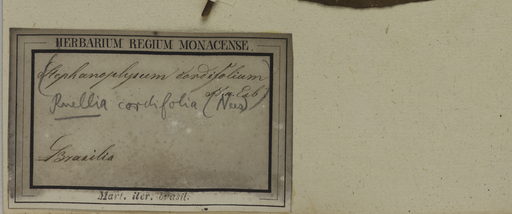 HERBARIUM REGIUM MONACENSE.
(Stephanophysum cordifolium
Ruellia cordifolia (Nees)
Brasilia
Mart. iter. brasil.